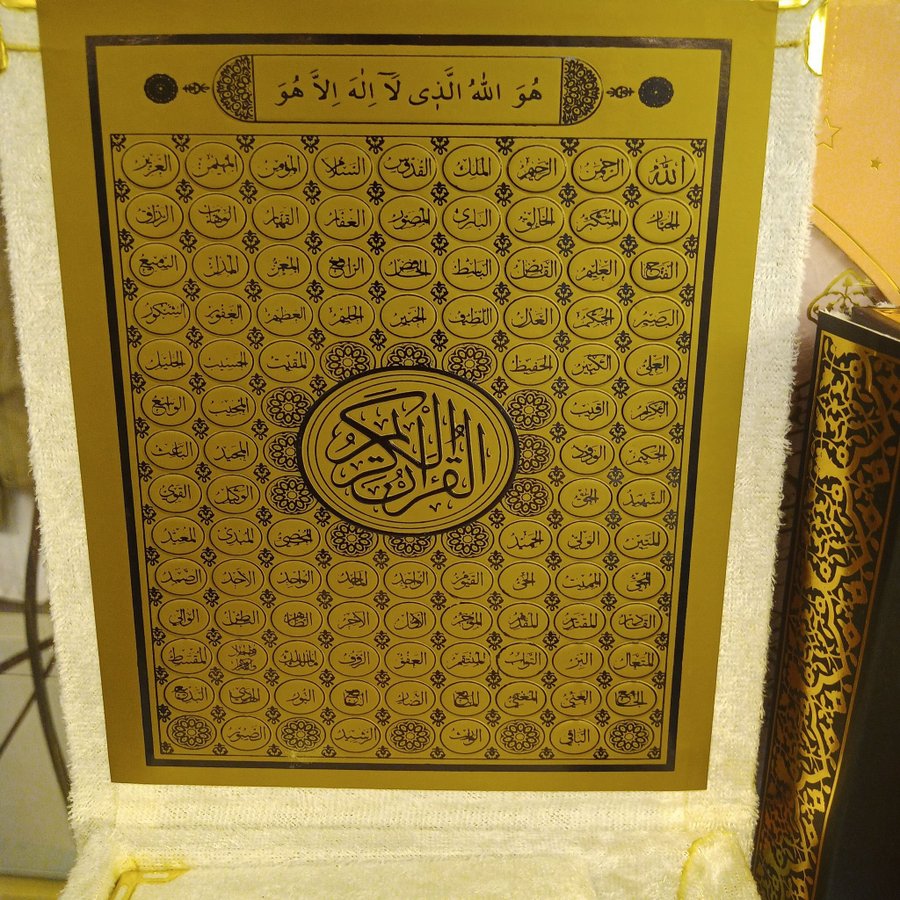 هُوَ اللهُ الَّذِي لَا إِلٰهَ إِلاَّ هُوَ
الله الرحمن الرحيم الملك القدوس السلام المؤمن المهيمن العزيز
الجبار المتكبر الخالق البارئ المصور الغفار القهار الوهاب الرزاق
الفتاح العليم القابض الباسط الخافض الرافع المعز المذل السميع
البصير الحكم العدل اللطيف الخبير الحليم العظيم الغفور الشكور
العلي الكبير الحفيظ المقيت الحسيب الجليل
الكريم الرقيب المجيب الواسع
الحكيم الودود القرآن الكريم المجيد الباعث
الشهيد الحق الوكيل القوي
المتين الولي الحميد المحصي المبدئ المعيد
المحيي المميت الحي القيوم الواجد الماجد الواحد الاحد الصمد
القادر المقتدر المقدم المؤخر الاول الاخر الظاهر الباطن الوالي
المتعال البر التواب المنتقم العفو الرؤف مالك الملك ذو الجلال والاكرام المقسط
الجامع الغني المغني المانع الضار النافع النور الهادي البديع
الباقي الوارث الرشيد الصبور